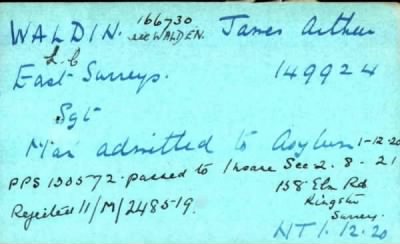 WALDIN. 166730 see WALDEN. James Arthur
L.C
East Surreys. 149924
Sgt
Man admitted to Asylum 1-12-20
PPS 130572 passed to Insane Sec 2. 8. 21
Rejected 11/M/248519.
158 Elm Rd
Kingston
Surrey.
NT 1.12.20